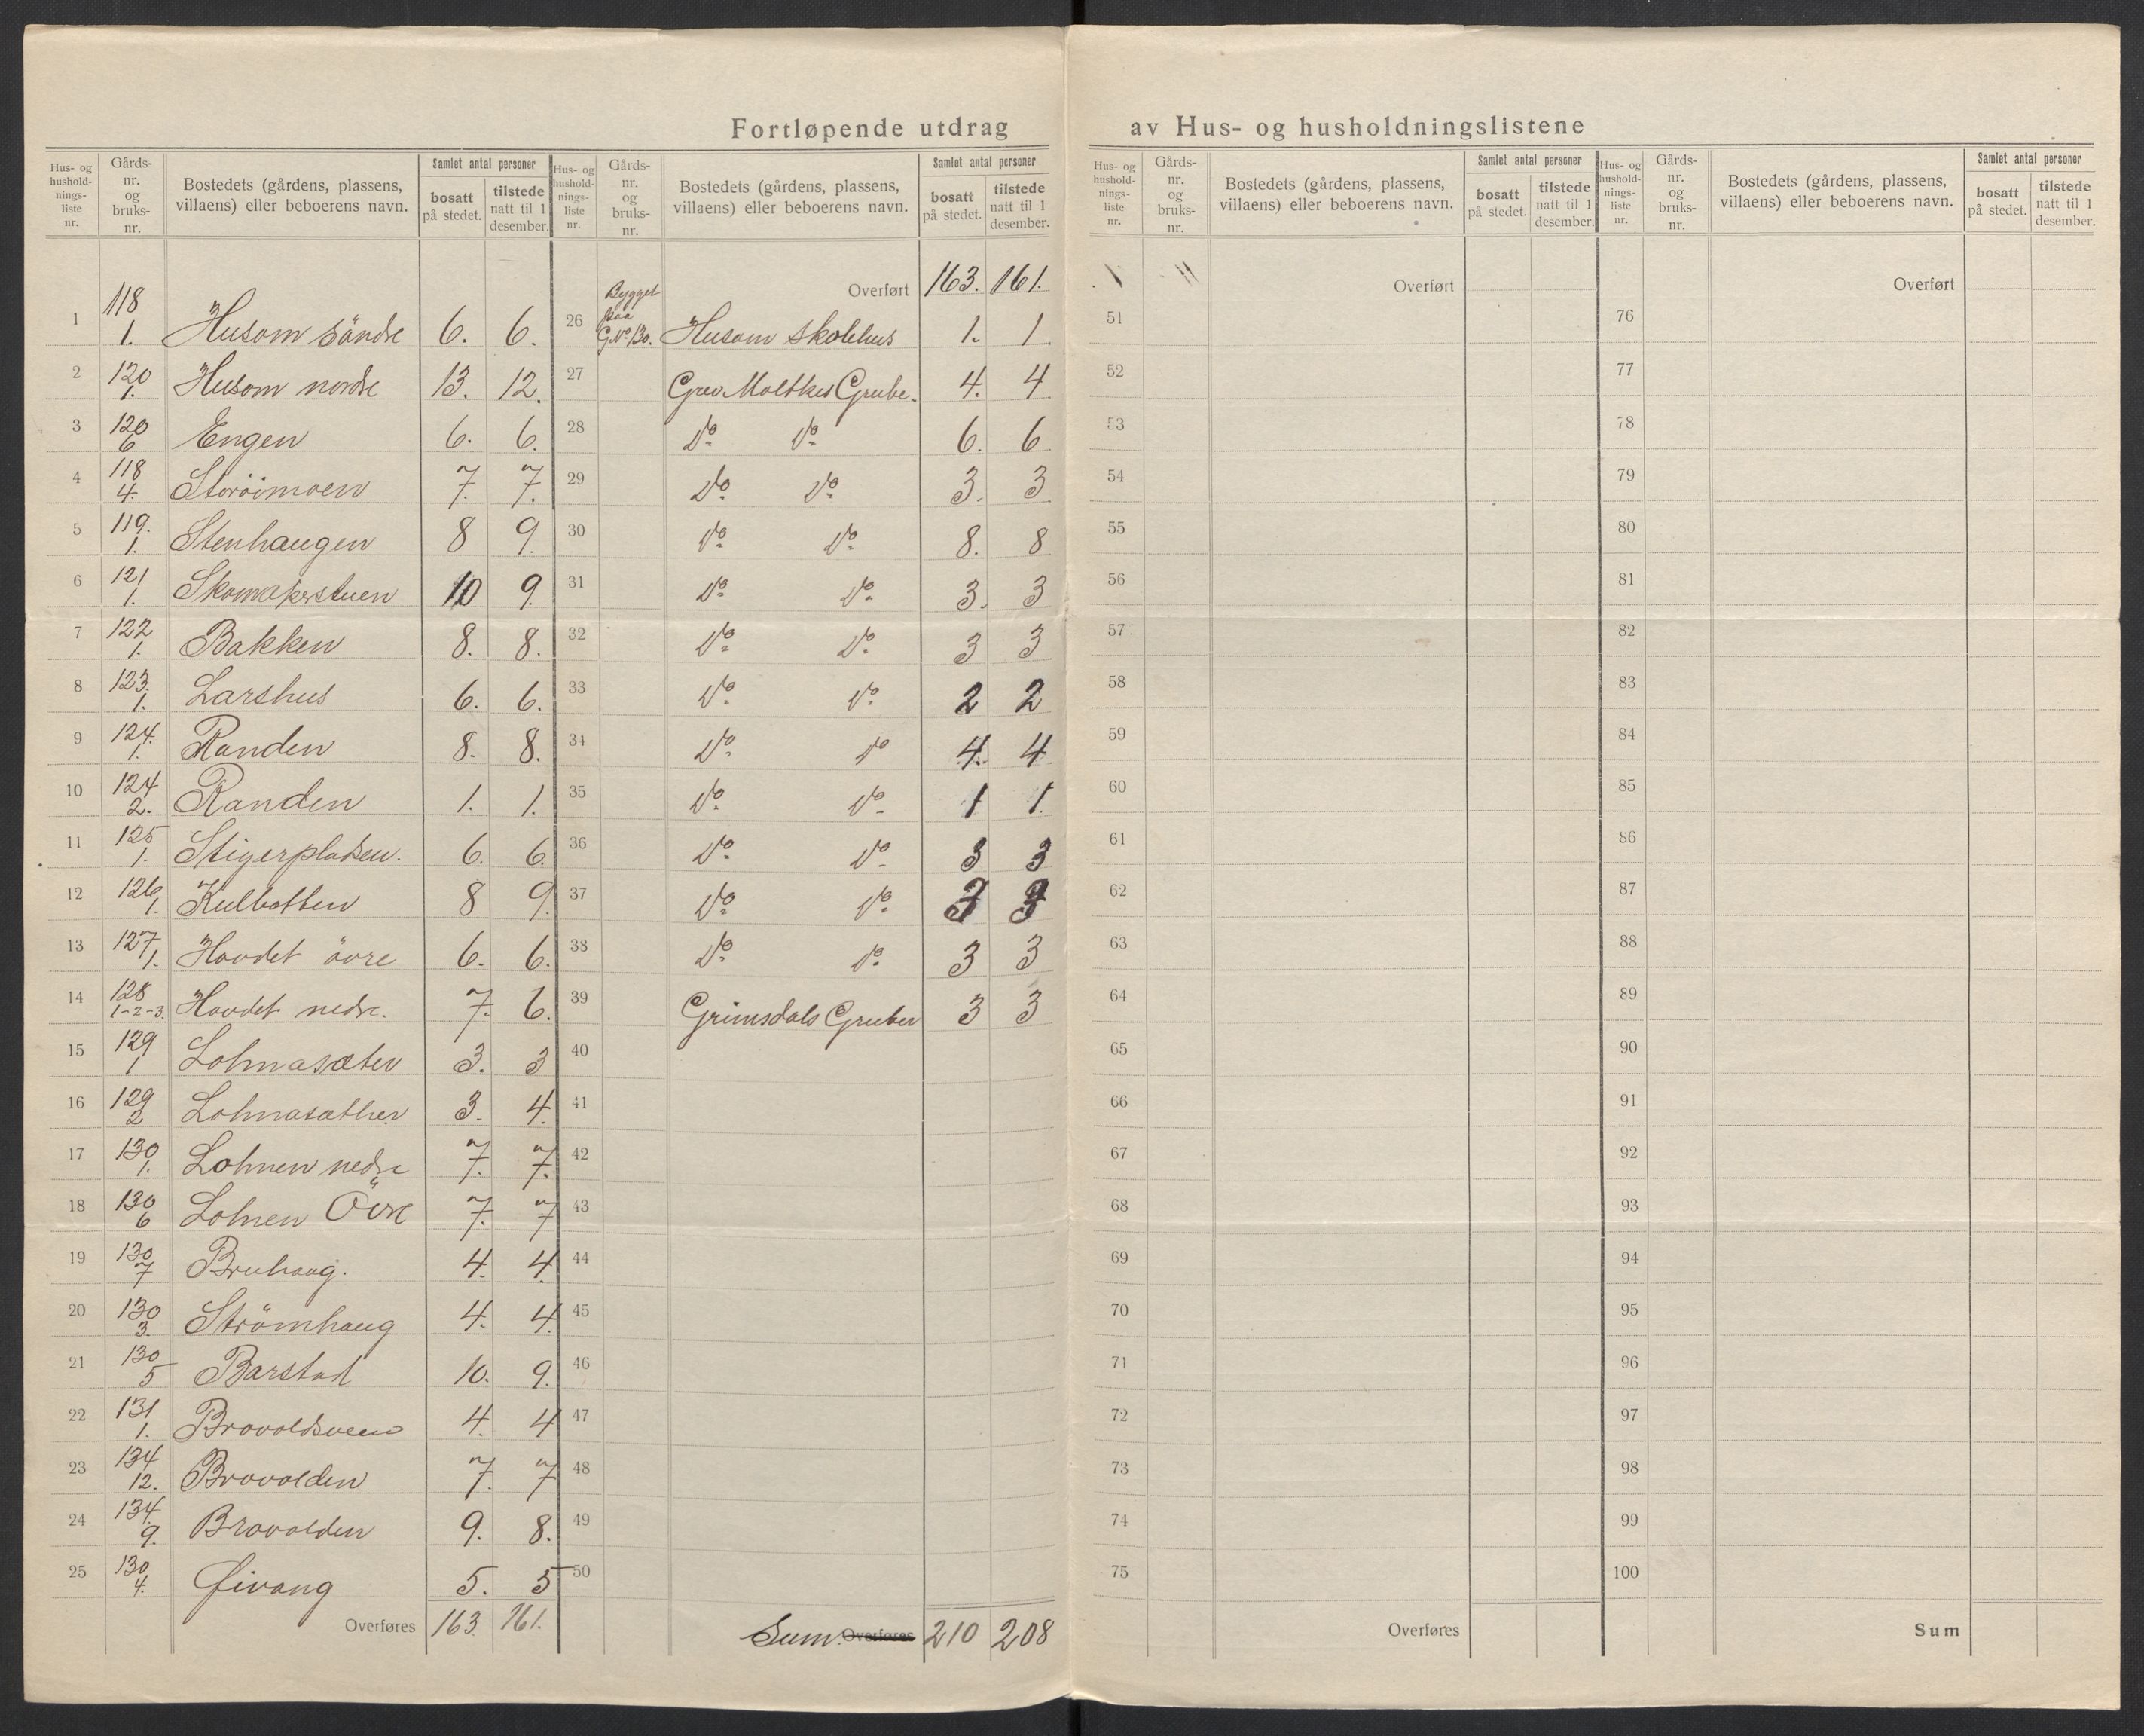 Fortløpende utdrag av Hus- og husholdningslistene
Hus- og hushold-nings-liste nr. Gårds-nr. og bruks-nr. Bostedets (gårdens, plassens, villaens) eller beboerens navn. Samlet antal personer bosatt på stedet. tilstede natt til 1 desember.
1 118 1. Husom söndre 6. 6.
2 120 1. Husom nordre 13. 12.
3 120 6 Engen 6. 6.
4 118 4. Storöimoen 7. 7.
5 119. 1. Stenhaugen 8 9.
6 121 1. Skomakerstuen 10 9.
7 122 1. Bakken 8. 8.
8 123. 1. Larshus 6. 6.
9 124. 1. Randen 8. 8.
10 124 2. Randen 1. 1.
11 125 1. Stigerpladsen. 6. 6.
12 126 1. Kulbotten 8 9.
13 127 1. Hovdet övre 6. 6.
14 128 1-2-3. Hovdet nedre. 7. 6.
15 129 1 Lohnasæter 3. 3
16 129 2 Lohnasæther 3. 4.
17 130 1. Lohnen nedre 7. 7.
18 130 6 Lohnen Övre 7. 7
19 130 7 Bruhaug. 4. 4
20 130 3. Strömhaug 4. 4.
21 130 5 Barstad 10. 9.
22 131 1. Brovoldsveen 4. 4
23 134 12. Brovolden 7. 7
24 134. 9. Brovolden 9. 8.
25 130 4. Givang 5. 5
Overføres 163. 161.
Hus- og hushold-nings-liste nr. Gårds-nr. og bruks-nr. Bostedets (gårdens, plassens, villaens) eller beboerens navn. Samlet antal personer bosatt på stedet. tilstede natt til 1 desember.
Overført 163. 161.
26 Bygget paa G.No 130. Husom skolehus 1. 1.
27 Grev Moltkes Grube. 4. 4
28 Do Do 6. 6
29 Do Do 3. 3
30 Do Do 8. 8
31 Do Do 3. 3
32 Do Do 3 3
33 Do Do 2 2
34 Do Do 4. 4
35 Do Do 1 1.
36 Do Do 3 3
37 Do Do 3 3
38 Do Do 3 3
39 Grimsdals Gruber 3 3
40
41
42
43
44
45
46
47
48
49
50
Sum. Overføres 210 208
Hus- og hushold-nings-liste nr. Gårds-nr. og bruks-nr. Bostedets (gårdens, plassens, villaens) eller beboerens navn. Samlet antal personer bosatt på stedet. tilstede natt til 1 desember.
Overført
51
52
53
54
55
56
57
58
59
60
61
62
63
64
65
66
67
68
69
70
71
72
73
74
75
Overføres
Hus- og hushold-nings-liste nr. Gårds-nr. og bruks-nr. Bostedets (gårdens, plassens, villaens) eller beboerens navn. Samlet antal personer bosatt på stedet. tilstede natt til 1 desember.
Overført
76
77
78
79
80
81
82
83
84
85
86
87
88
89
90
91
92
93
94
95
96
97
98
99
100
Sum